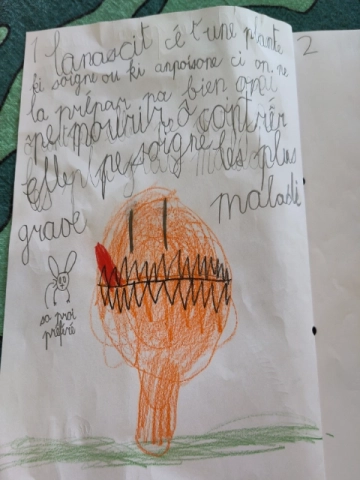 1 Lanascit c'é t'une plante
ki soigne ou ki anpoisone ci on ne
la prépar pa bien on peut
mourir, ô contrér
Elle peu soigné les plus
grave maladie
sa proi
préféré
2